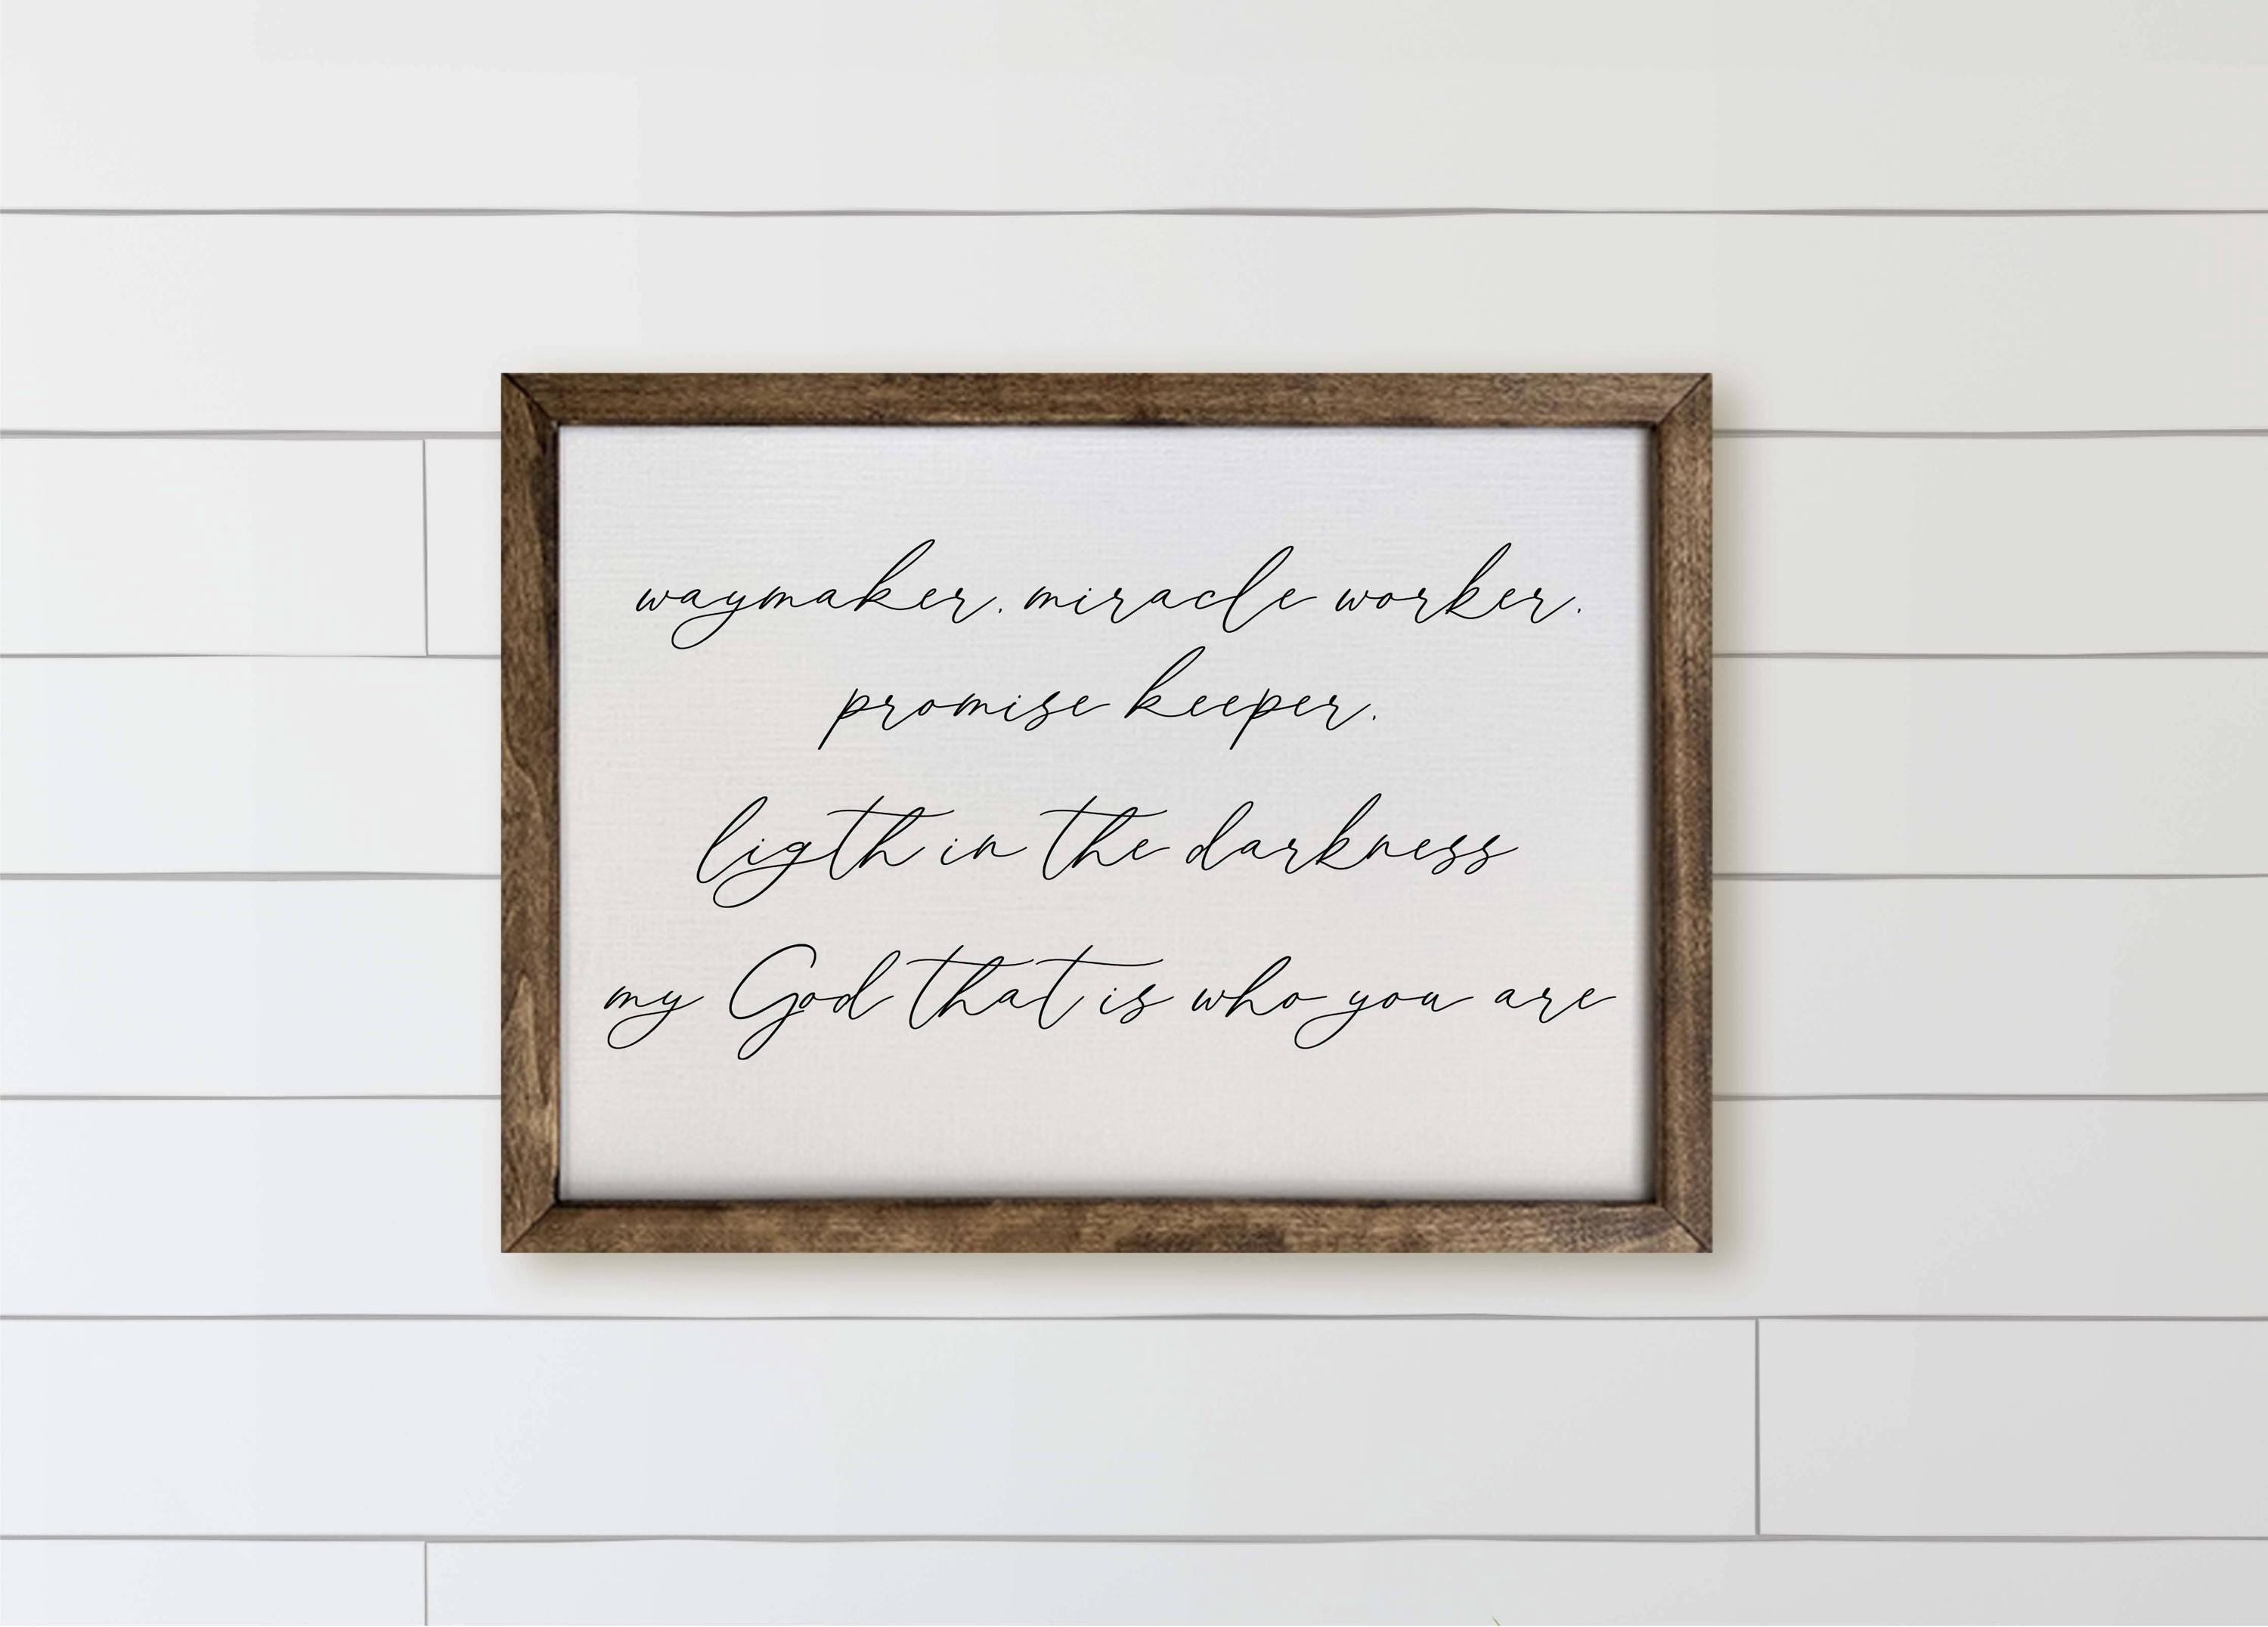 waymaker. miracle worker.
promise keeper.
ligth in the darkness
my God that is who you are